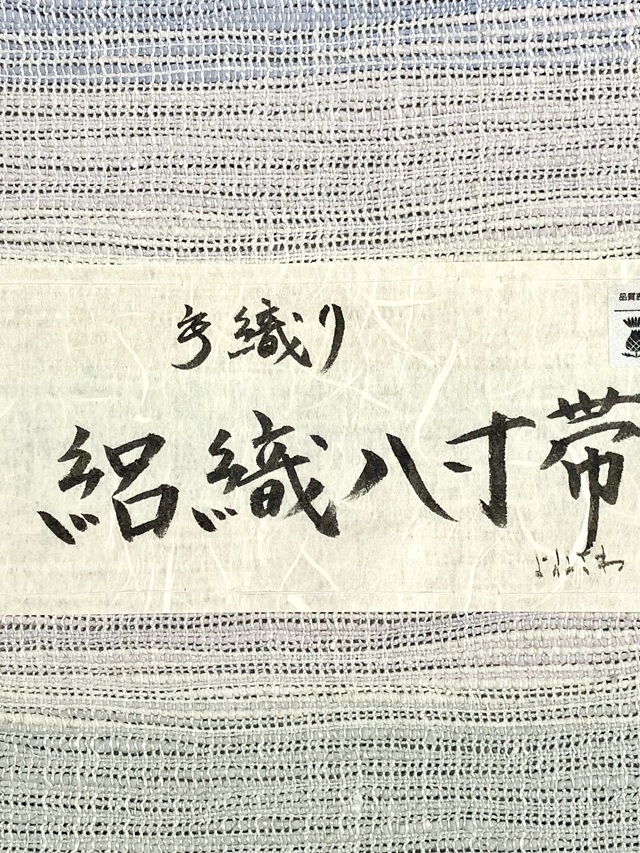 手織り
絽織八寸帯
よねざわ
品質